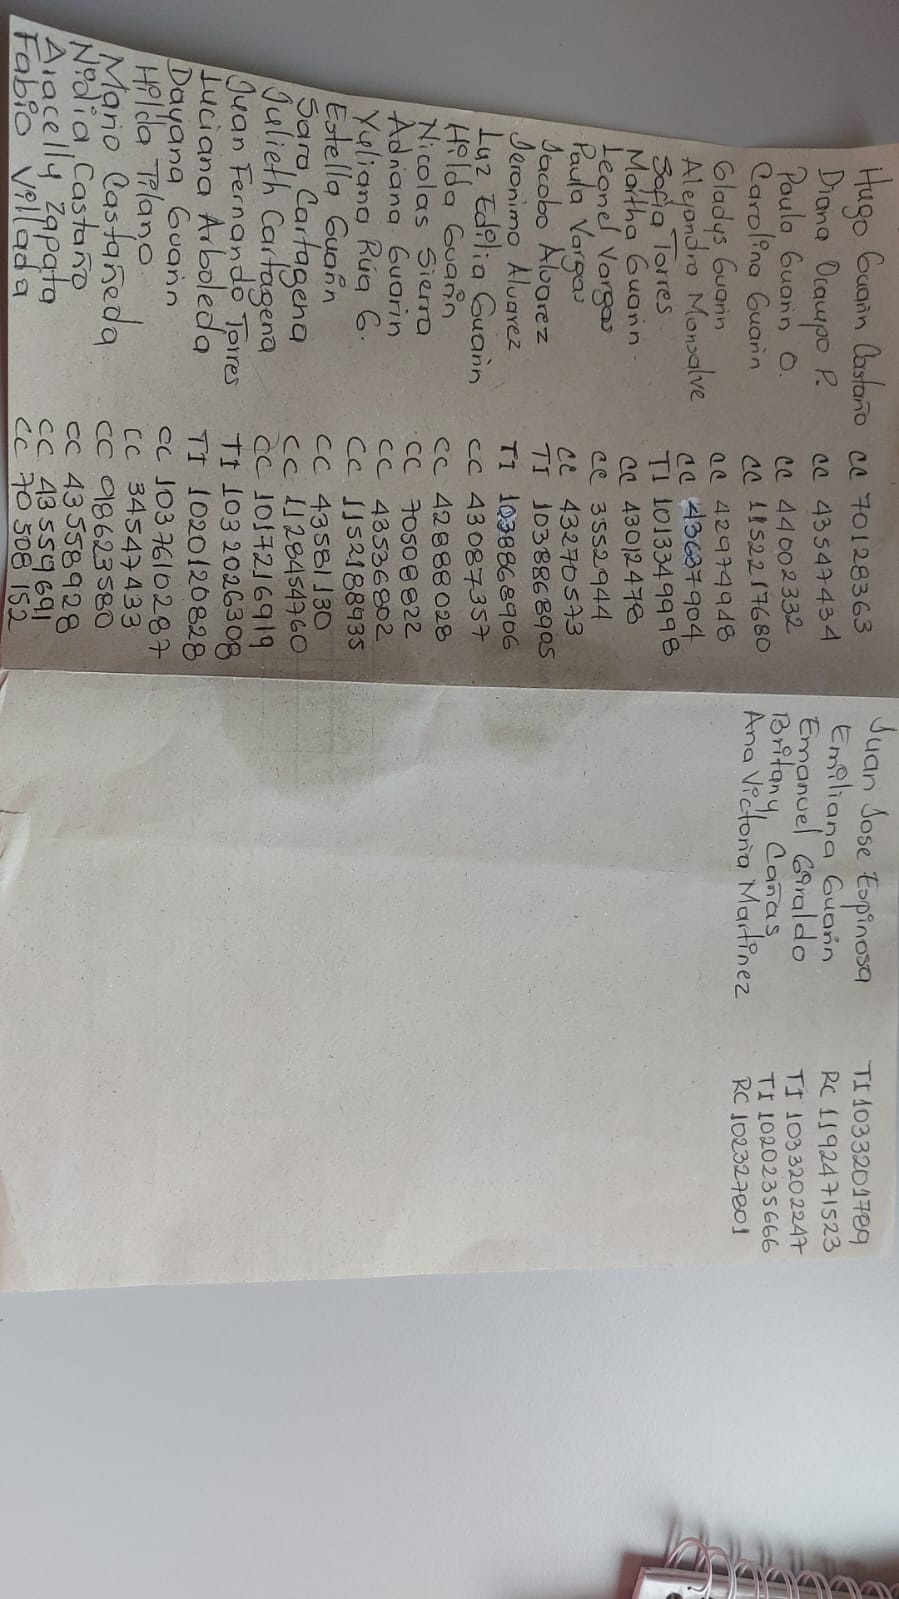 Hugo Guarin Castaño CC 70128363
Diana Ocampo P. CC 43547434
Paula Guarin O. CC 44002332
Carolina Guarin CC 1152217680
Gladys Guarin CC 42974948
Alejandra Monsalve CC 43687904
Sofia Torres. TI 1013349998
Martha Guarin. CC 43012478
Leonel Vargas CC 3552944
Paula Vargas CC 43270573
Jacobo Alvarez TI 1038868905
Jeronimo Alvarez TI 1038868906
Luz Edilia Guarin CC 43087357
Hilda Guarin CC 42888028
Nicolas Sierra CC 70508822
Adriana Guarin CC 43536802
Yuliana Rua G. CC 1152188935
Estella Guarin CC 43581130
Sara Cartagena CC 1128454760
Julieth Cartagena CC 1017216919
Juan Fernando Torres TI 1032026308
Luciana Arboleda TI 1020120828
Dayana Guarin CC 1037610287
Hilda Tilano CC 34547433
Mario Castañeda CC 98623580
Nidia Castaño CC 43558928
Aracelly Zapata CC 43559691
Fabio Villada CC 70508152
Juan Jose Espinosa TI 1033201789
Emiliana Guarin RC 1192471523
Emanuel Giraldo TI 1033202247
Britany Cañas TI 1020235666
Ana Victoria Martinez RC 102327801